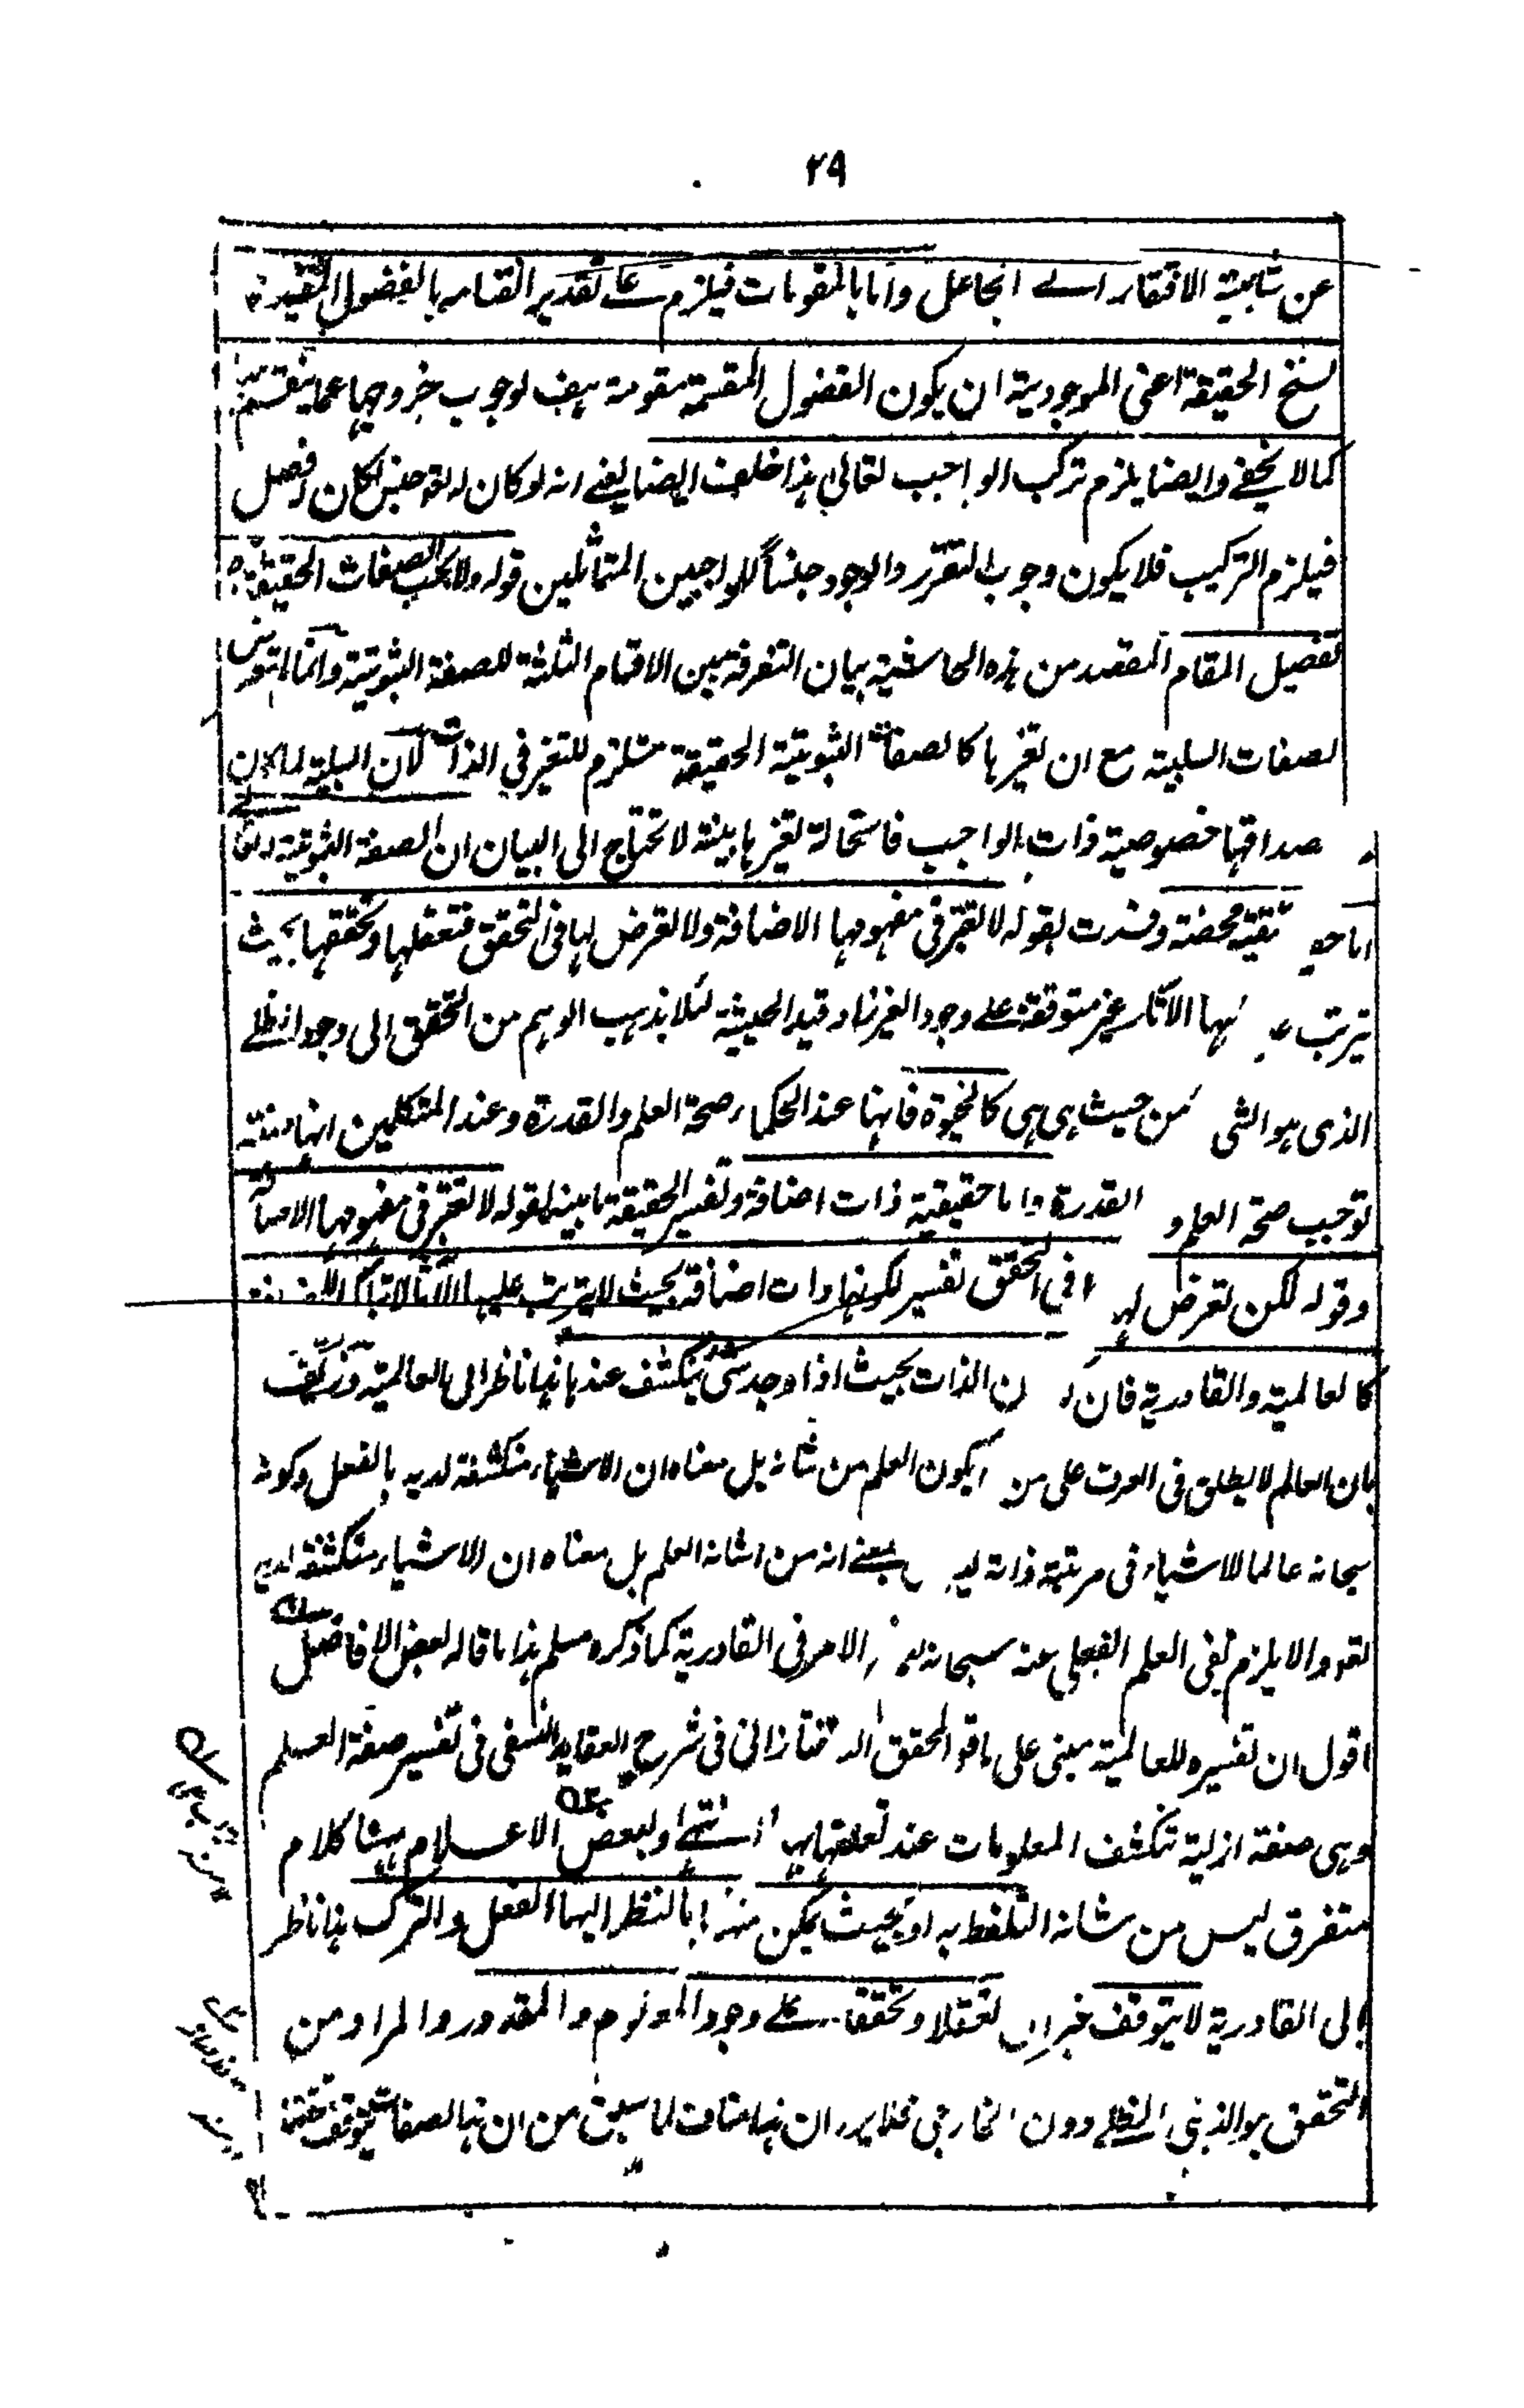 ٢٩
عن شائبة الافتقار الى الجاعل واما بالمقومات فيلزم على تقدير انقسامه بالفصول المفيدة
لسنخ الحقيقة اعنى الموجودية ان يكون الفصول المقسمة مقومة هف لوجوب خروجها عما ينقسم
كما لا يخفى وايضا يلزم تركب الواجب تعالى هذا خلف ايضا يعنى انه لو كان له تعو جنس لكان له فصل
فيلزم التركيب فلا يكون وجوب التقرر والوجود جنسا للواجبين المتماثلين قوله ولا يجب الصفات الحقيقة
تفصيل المقام المقصد من هذه الحاشية بيان التفرقة بين الاقسام الثلثة للصفة الثبوتية وانما لم يتعرض
لصفات السلبية مع ان تغيرها كالصفات الثبوتية الحقيقة مستلزم للتغير فى الذات لان السلبية لما كان
صداقها خصوصية ذات الواجب فاستحالة تغيرها بينة لا تحتاج الى البيان ان الصفة الثبوتية
اما حقيقية محضة وفسرت بقوله لا تعتبر فى مفهومها الاضافة ولا تعرض لها فى التحقق فتعقلها وتحققها بحيث
يترتب عليها الآثار غير متوقفة على وجود الغير زاد قيد الحيثية لئلا يذهب الوهم من التحقق الى وجود الظلى
الذى هو الشى من حيث هى هى كالحيوة فانها عند الحكماء صحة العلم والقدرة وعند المتكلمين انها صفة
توجب صحة العلم و القدرة واما حقيقية ذات اضافة وتفسير الحقيقة ما بينه بقوله لا تعتبر فى مفهومها الاضافة
وقوله لكن تعرض لها فى التحقق تفسير لكونها ذات اضافة بحيث لا يترتب عليها الآثار الا بتلك الاضافة
كالعالمية والقادرية فان كون الذات بحيث اذا وجد شى ينكشف عندها هذا ناظر الى العالمية وزيف
بان العالم لا يطلق فى العرف على من يكون العلم من شانه بل معناه ان الاشياء منكشفة لديه بالفعل وكونه
سبحانه عالما للاشياء فى مرتبة ذاته ليس بمعنى انه من شانه العلم بل معناه ان الاشياء منكشفة لديه
تعو والا يلزم نفى العلم الفعلى عنه سبحانه نعم الامر فى القادرية كما ذكره مسلم هذا ما قاله بعض الافاضل
اقول ان تفسيره للعالمية مبنى على ما قو المحقق التفتازانى فى شرح العقايد النسفى فى تفسير صفة العلم
وهى صفة ازلية تنكشف المعلومات عند تعلقها بها انتهى ولبعض الاعلام ههنا كلام
متفرق ليس من شانه التلفظ به او بحيث يمكن منها بالنظر اليها الفعل والترك هذا ناظر
الى القادرية لا يتوقف خبر ان تعقلا وتحققا على وجود المعلوم والمقدور والمراد من
التحقق هو الذهنى الظلى دون الخارجى فلا يرد ان هذا مناف لما سبق من ان هذا الصفات يتوقف تحققها